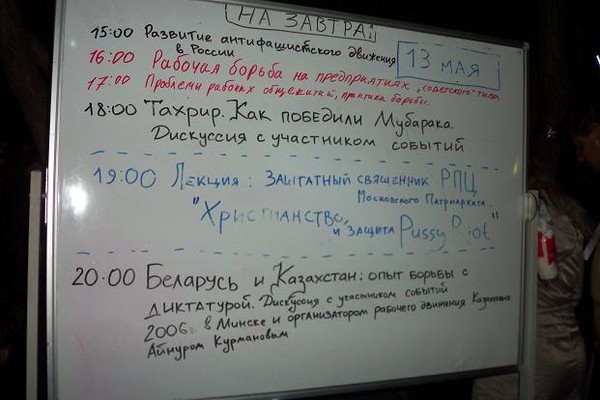 НА ЗАВТРА!
13 МАЯ
15:00 Развитие антифашистского движения
в России
16:00 Рабочая борьба на предприятиях „советского" типа.
17:00 Проблемы рабочих общежитий, практика борьбы.
18:00 Тахрир. Как победили Мубарака.
Дискуссия с участником событий
19:00 Лекция: Заштатный священник РПЦ
Московского Патриархата.
"Христианство,
и защита Pussy Riot"
20:00 Беларусь и Казахстан: опыт борьбы с
диктатурой. Дискуссия с участником событий
2006г. в Минске и организатором рабочего движения Казахстана
Айнуром Курмановым